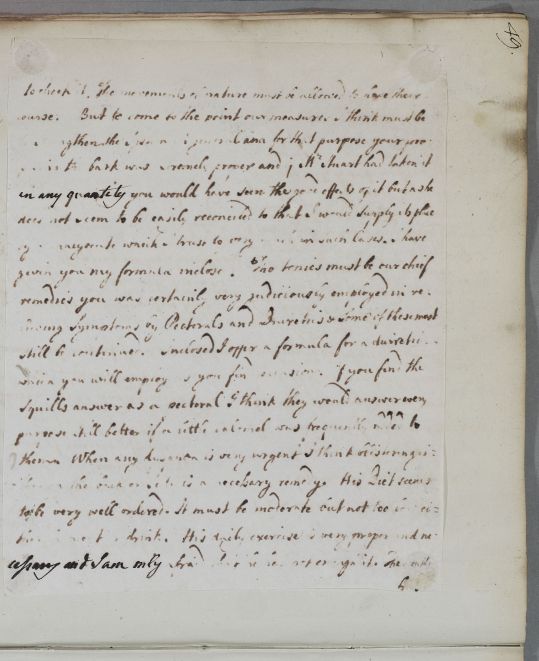 49
to check it. The movements of nature must be allowed to have their
course. But to come to the point our measures I think must be
the system in general and for that purpose your pro
bark was extremely proper and if Mr Stuart had taken it
in any quantity you would have seen the good effects of it but as he
does not seem to be easily reconciled to that I would supply its place
by a which I trust to very much in such cases. I have
given you my formula inclosed. Tho tonics must be our chief
remedies you was certainly very judiciously employed in re-
lieving Symptoms by Pectorals and Diuretics & some of these must
still be continued. Inclosed I offer a formula for a diuretic
which you will employ as you find occasion. If you find the
Squills answer as a pectoral I think they would answer every
purpose still better if a little calomel was frequently added to
them. When any dyspnea is very urgent I think blistering
the is a necessary remedy. His Diet seems
to be very well ordered. It must be moderate but not too
drink. His daily exercise is very proper and ne-
cessary and I am only afraid he has not enough of it. The